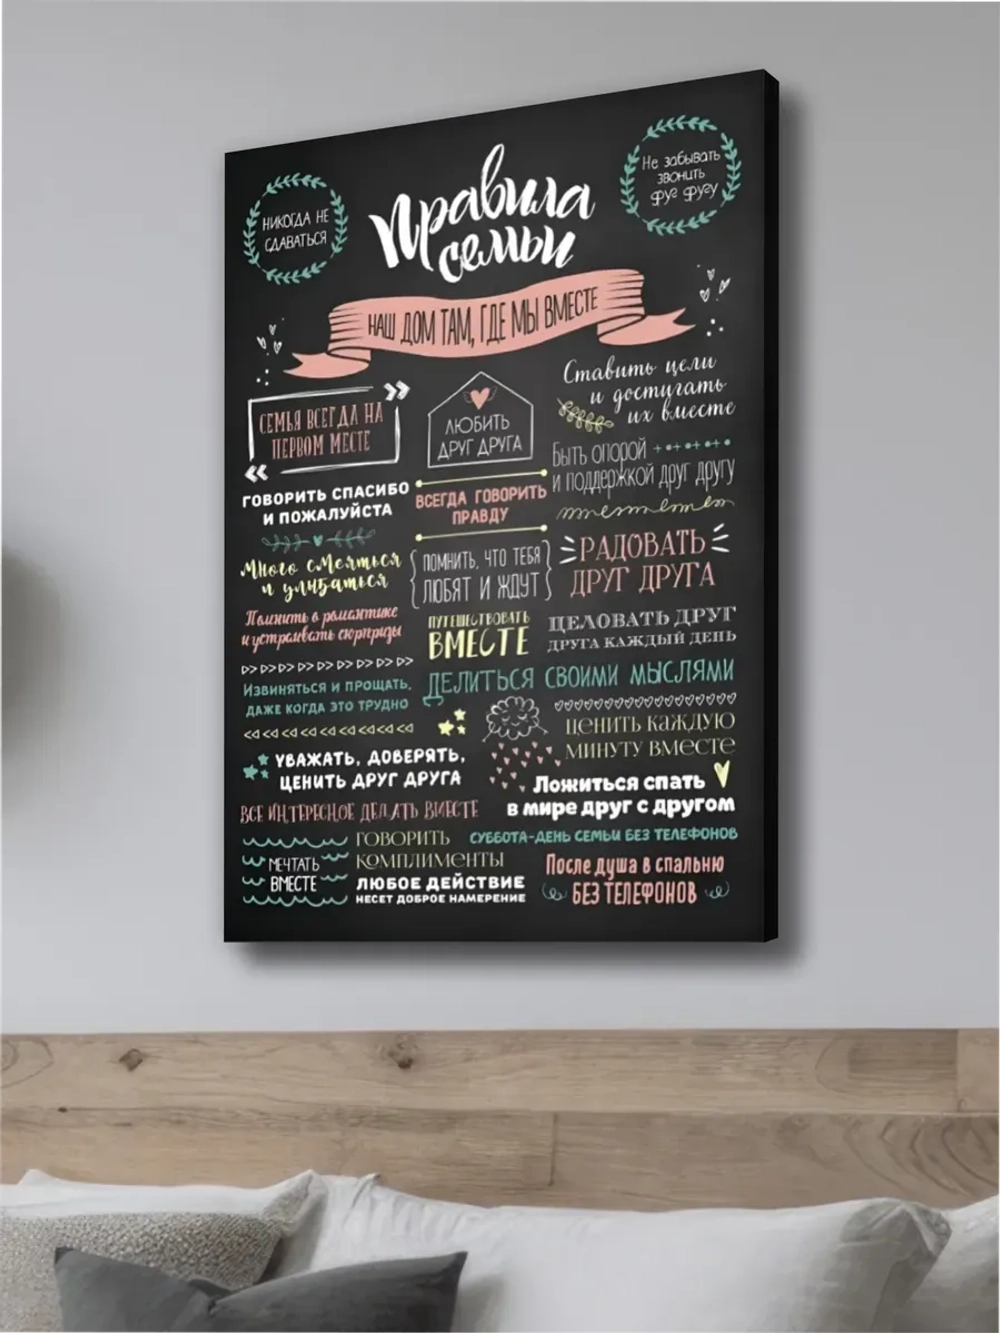 НИКОГДА НЕ
СДАВАТЬСЯ
Правила
семьи
Не забывать
звонить
друг другу
НАШ ДОМ ТАМ, ГДЕ МЫ ВМЕСТЕ
СЕМЬЯ ВСЕГДА НА
ПЕРВОМ МЕСТЕ
ЛЮБИТЬ
ДРУГ ДРУГА
Ставить цели
и достигать
их вместе
ГОВОРИТЬ СПАСИБО
И ПОЖАЛУЙСТА
ВСЕГДА ГОВОРИТЬ
ПРАВДУ
БЫТЬ ОПОРОЙ
И ПОДДЕРЖКОЙ ДРУГ ДРУГУ
Много смеяться
и улыбаться
ПОМНИТЬ, ЧТО ТЕБЯ
ЛЮБЯТ И ЖДУТ
РАДОВАТЬ
ДРУГ ДРУГА
Помнить о романтике
и устраивать сюрпризы
ПУТЕШЕСТВОВАТЬ
ВМЕСТЕ
ЦЕЛОВАТЬ ДРУГ
ДРУГА КАЖДЫЙ ДЕНЬ
Извиняться и прощать,
даже когда это трудно
ДЕЛИТЬСЯ СВОИМИ МЫСЛЯМИ
ЦЕНИТЬ КАЖДУЮ
МИНУТУ ВМЕСТЕ
УВАЖАТЬ, ДОВЕРЯТЬ,
ЦЕНИТЬ ДРУГ ДРУГА
Ложиться спать
в мире друг с другом
ВСЕ ИНТЕРЕСНОЕ ДЕЛАТЬ ВМЕСТЕ
МЕЧТАТЬ
ВМЕСТЕ
ГОВОРИТЬ
КОМПЛИМЕНТЫ
ЛЮБОЕ ДЕЙСТВИЕ
НЕСЕТ ДОБРОЕ НАМЕРЕНИЕ
СУББОТА-ДЕНЬ СЕМЬИ БЕЗ ТЕЛЕФОНОВ
После душа в спальню
БЕЗ ТЕЛЕФОНОВ